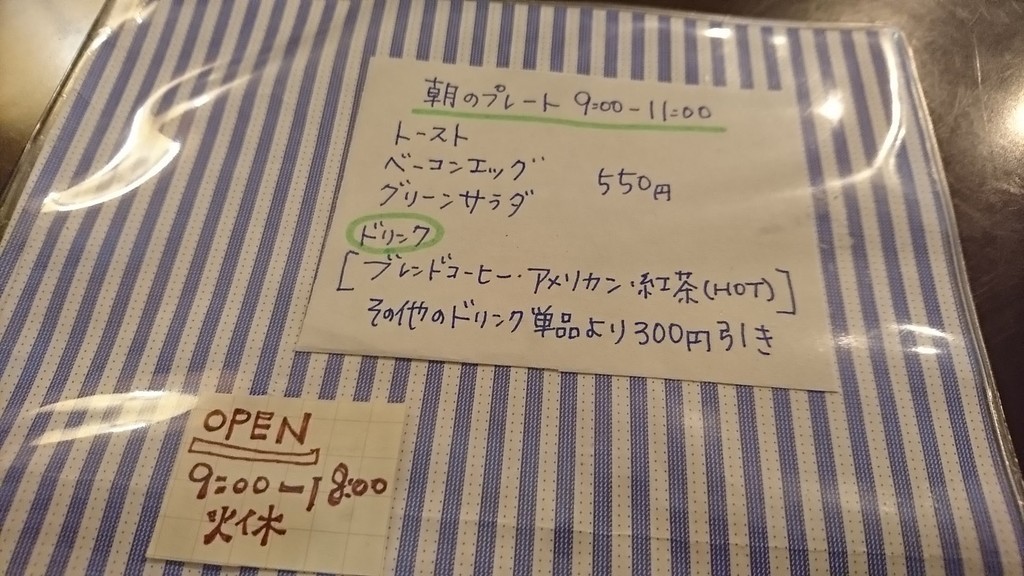 朝のプレート 9:00-11:00
トースト
ベーコンエッグ 550円
グリーンサラダ
ドリンク
[ブレンドコーヒー・アメリカン・紅茶(HOT)]
その他のドリンク単品より300円引き
OPEN
9:00-18:00
火休